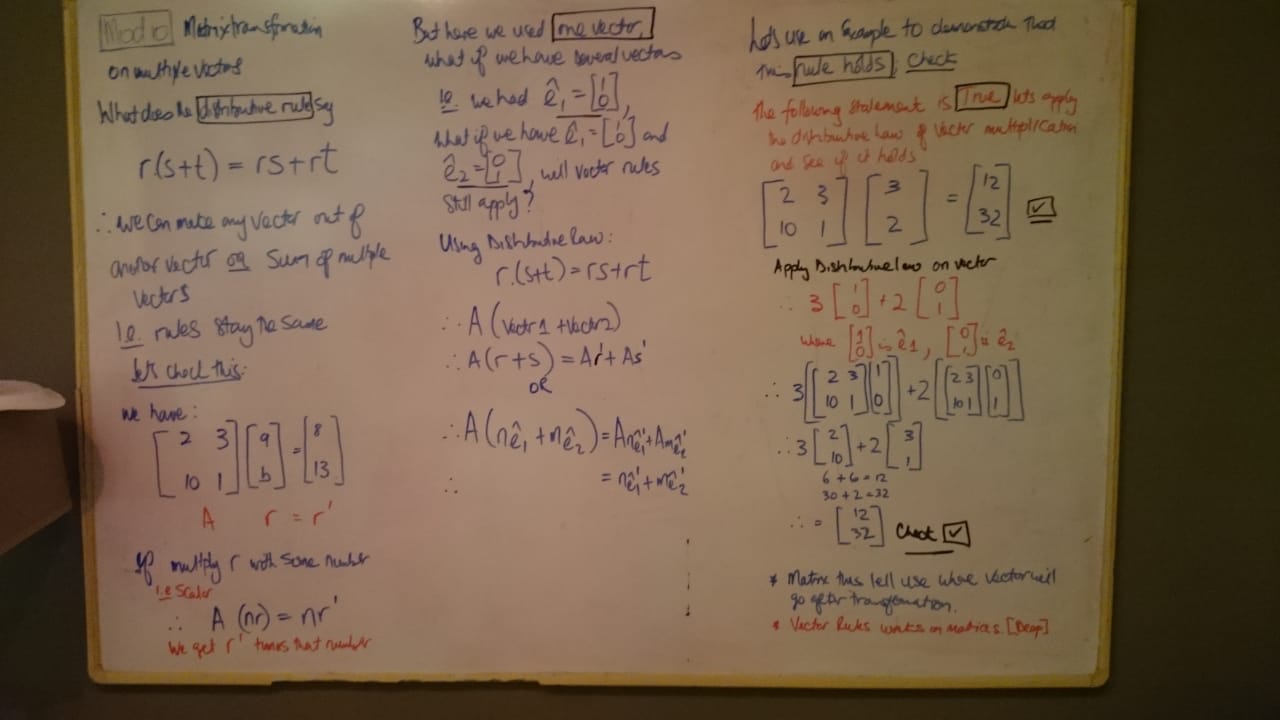 Mod 10 Matrix transformation
on multiple vectors
What does the distributive rule say
r(s+t) = rs+rt
∴ we can make any vector out of
another vector OR Sum of multiple
vectors
I.e. rules stay the same
let's check this:
we have:
[2 3; 10 1] [a; b] = [8; 13]
A r = r'
If multiply r with some number
i.e Scalar
∴ A (nr) = nr'
We get r' times that number
But here we used one vector,
what if we have several vectors
Ie. we had ê₁ = [1; 0],
what if we have ê₁ = [1; 0] and
ê₂ = [0; 1], will vector rules
Still apply?
Using Distributive law:
r.(s+t) = rs+rt
∴ A (vectr 1 + vectr 2)
∴ A(r+s) = Ar'+As'
OR
∴ A(nê₁ + mê₂) = Anê₁' + Amê₂'
∴ = nê₁' + mê₂'
Lets use an Example to demonstrate that
this rule holds; Check
The following statement is True lets apply
the distributive law of Vector multiplication
and see if it holds
[2 3; 10 1] [3; 2] = [12; 32] ☑
Apply Distributive law on vector
∴ 3 [1; 0] + 2 [0; 1]
where [1; 0] is ê1, [0; 1] is ê₂
∴ 3[[2 3; 10 1][1; 0]] + 2[[2 3; 10 1][0; 1]]
∴ 3 [2; 10] + 2 [3; 1]
6 + 6 = 12
30 + 2 = 32
∴ = [12; 32] Check ☑
* Matrix thus tell use where Vector will
go after transformation.
* Vector Rules works on matrices. [Deap]